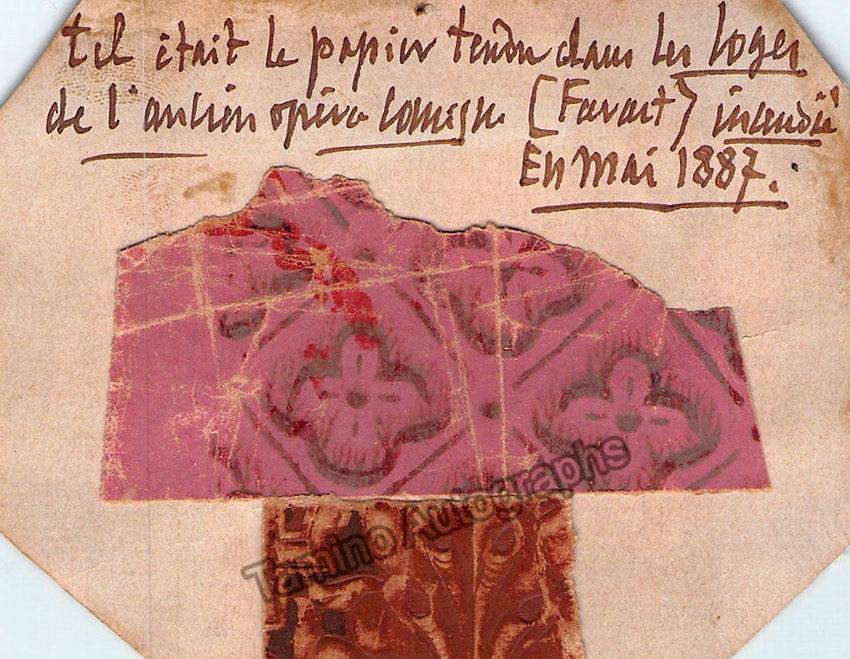 tel était le papier tendu dans les loges
de l'ancien opéra comique (Favart) incendié
En Mai 1887.
Tamino Autographs